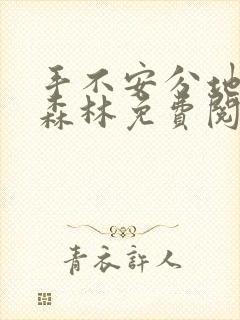 手不安分地
森林免费阅
青衣許人